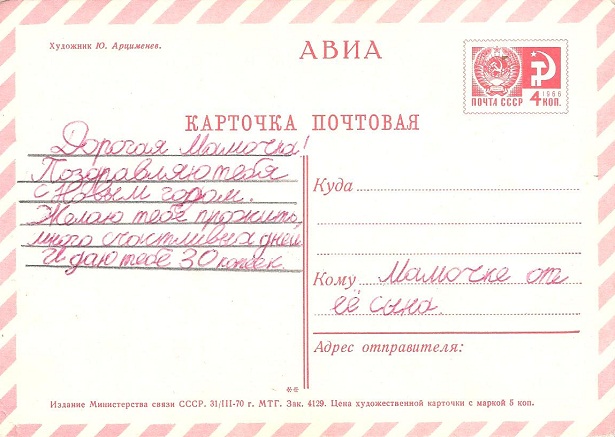 Художник Ю. Арцименев.
АВИА
1966
ПОЧТА СССР 4 КОП.
КАРТОЧКА ПОЧТОВАЯ
Дорогая Мамочка!
Поздравляю тебя
с Новым годом.
Желаю тебе прожить
много счастливых дней.
И даю тебе 30 копеек
Куда
Кому Мамочке от
её сына.
Адрес отправителя:
**
Издание Министерства связи СССР. 31/III-70 г. МТГ. Зак. 4129. Цена художественной карточки с маркой 5 коп.